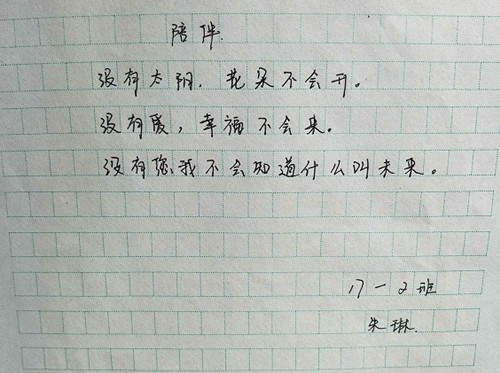 陪伴
没有太阳，花朵不会开。
没有爱，幸福不会来。
没有您我不会知道什么叫未来。
17-2班
朱琳